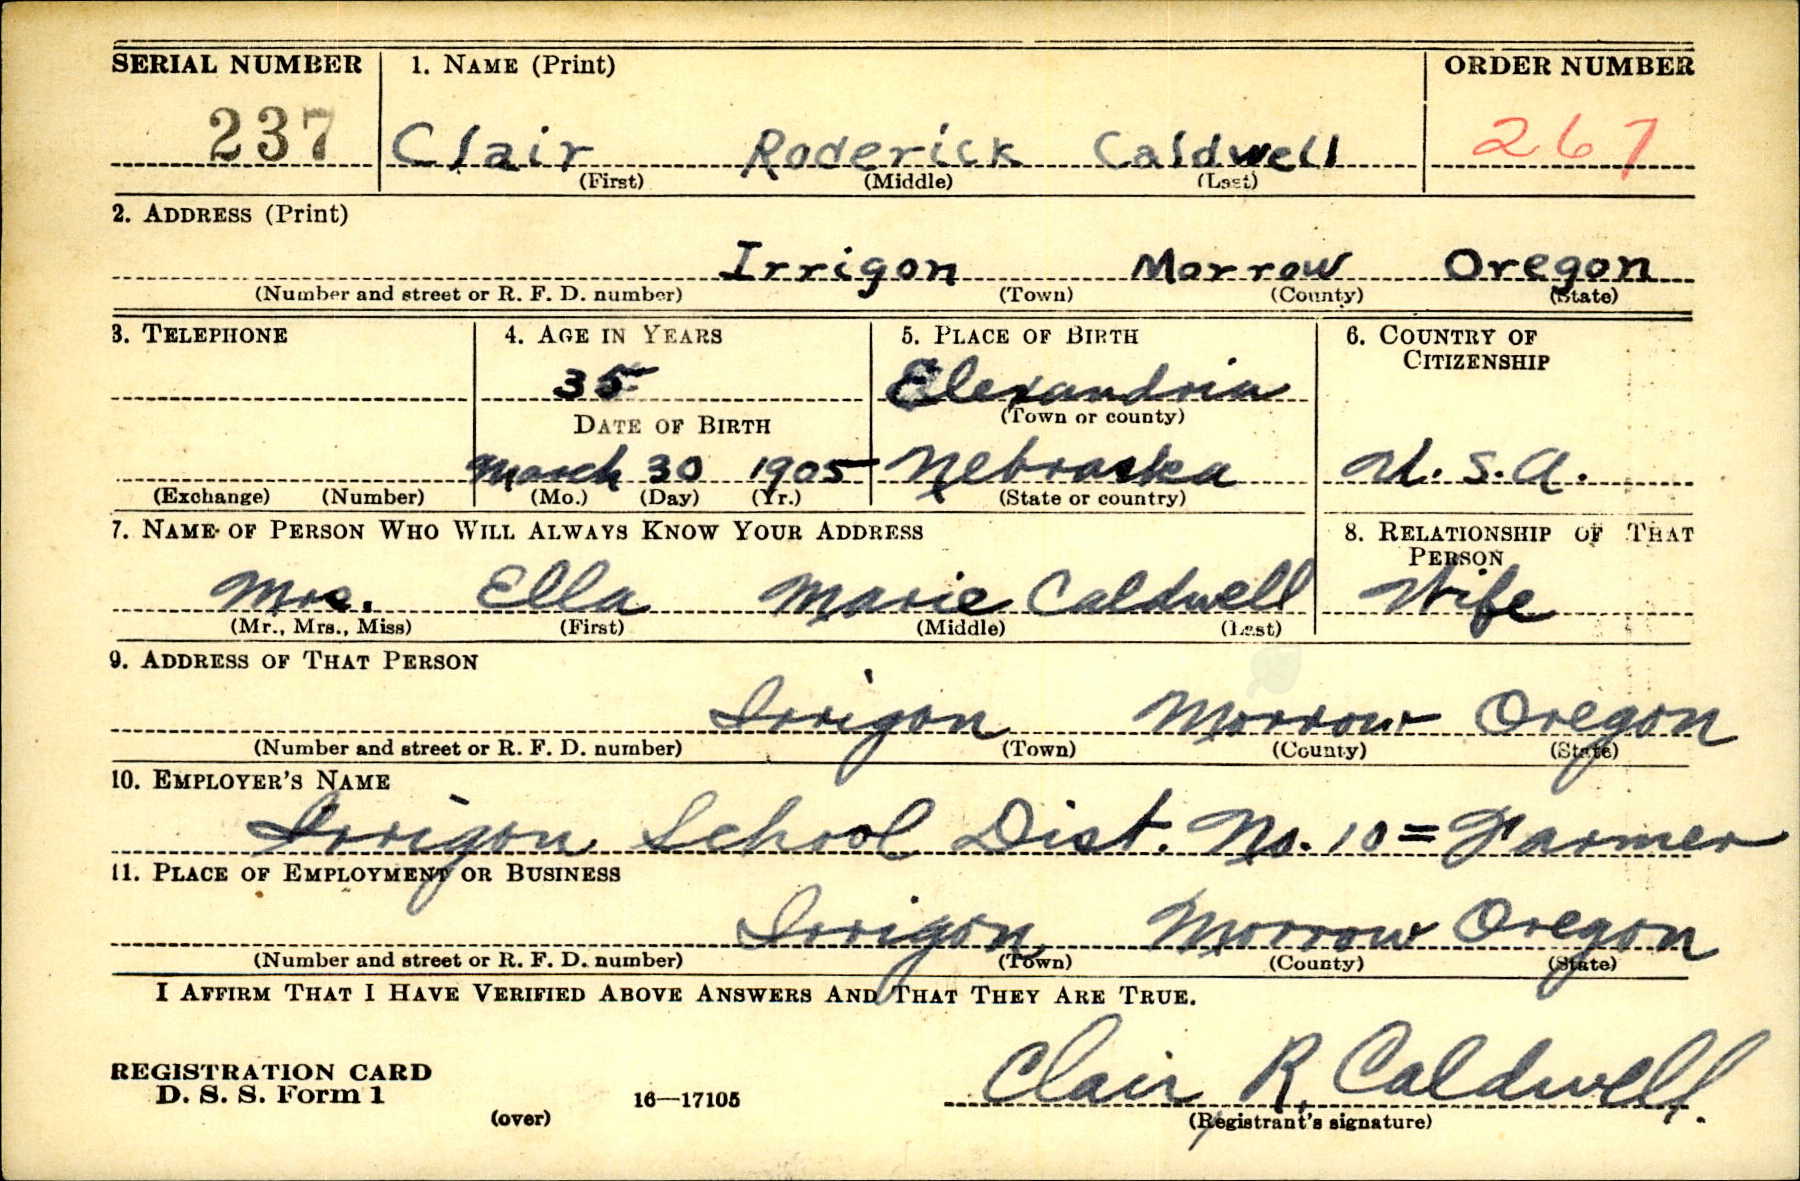 SERIAL NUMBER 1. NAME (Print) ORDER NUMBER
237 Clair Roderick Caldwell 267
(First) (Middle) (Last)
2. ADDRESS (Print)
Irrigon Morrow Oregon
(Number and street or R. F. D. number) (Town) (County) (State)
3. TELEPHONE 4. AGE IN YEARS 5. PLACE OF BIRTH 6. COUNTRY OF CITIZENSHIP
35 Elexandria
DATE OF BIRTH (Town or county)
March 30 1905 Nebraska U.S.A.
(Exchange) (Number) (Mo.) (Day) (Yr.) (State or country)
7. NAME OF PERSON WHO WILL ALWAYS KNOW YOUR ADDRESS 8. RELATIONSHIP OF THAT PERSON
Mrs. Ella Marie Caldwell Wife
(Mr., Mrs., Miss) (First) (Middle) (Last)
9. ADDRESS OF THAT PERSON
Irrigon Morrow Oregon
(Number and street or R. F. D. number) (Town) (County) (State)
10. EMPLOYER'S NAME
Irrigon School Dist. No. 10 = Farmer
11. PLACE OF EMPLOYMENT OR BUSINESS
Irrigon, Morrow Oregon
(Number and street or R. F. D. number) (Town) (County) (State)
I AFFIRM THAT I HAVE VERIFIED ABOVE ANSWERS AND THAT THEY ARE TRUE.
Clair R. Caldwell.
REGISTRATION CARD
D. S. S. Form 1 (over) 16—17105 (Registrant's signature)